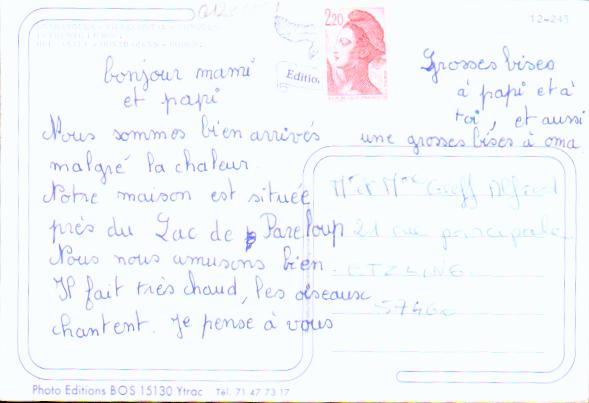 12-245
bonjour mami
et papi
Nous sommes bien arrivés
malgré la chaleur.
Notre maison est située
près du Lac de Pareloup
Nous nous amusons bien.
Il fait très chaud, les oiseaux
chantent. Je pense à vous
Grosses bises
à papi et à
toi, et aussi
une grosses bises à oma
2,20
Edition
Mr et Mme Alfred
21 rue principale
ETZLING
57460
Photo Editions BOS 15130 Ytrac Tél. 71 47 73 17